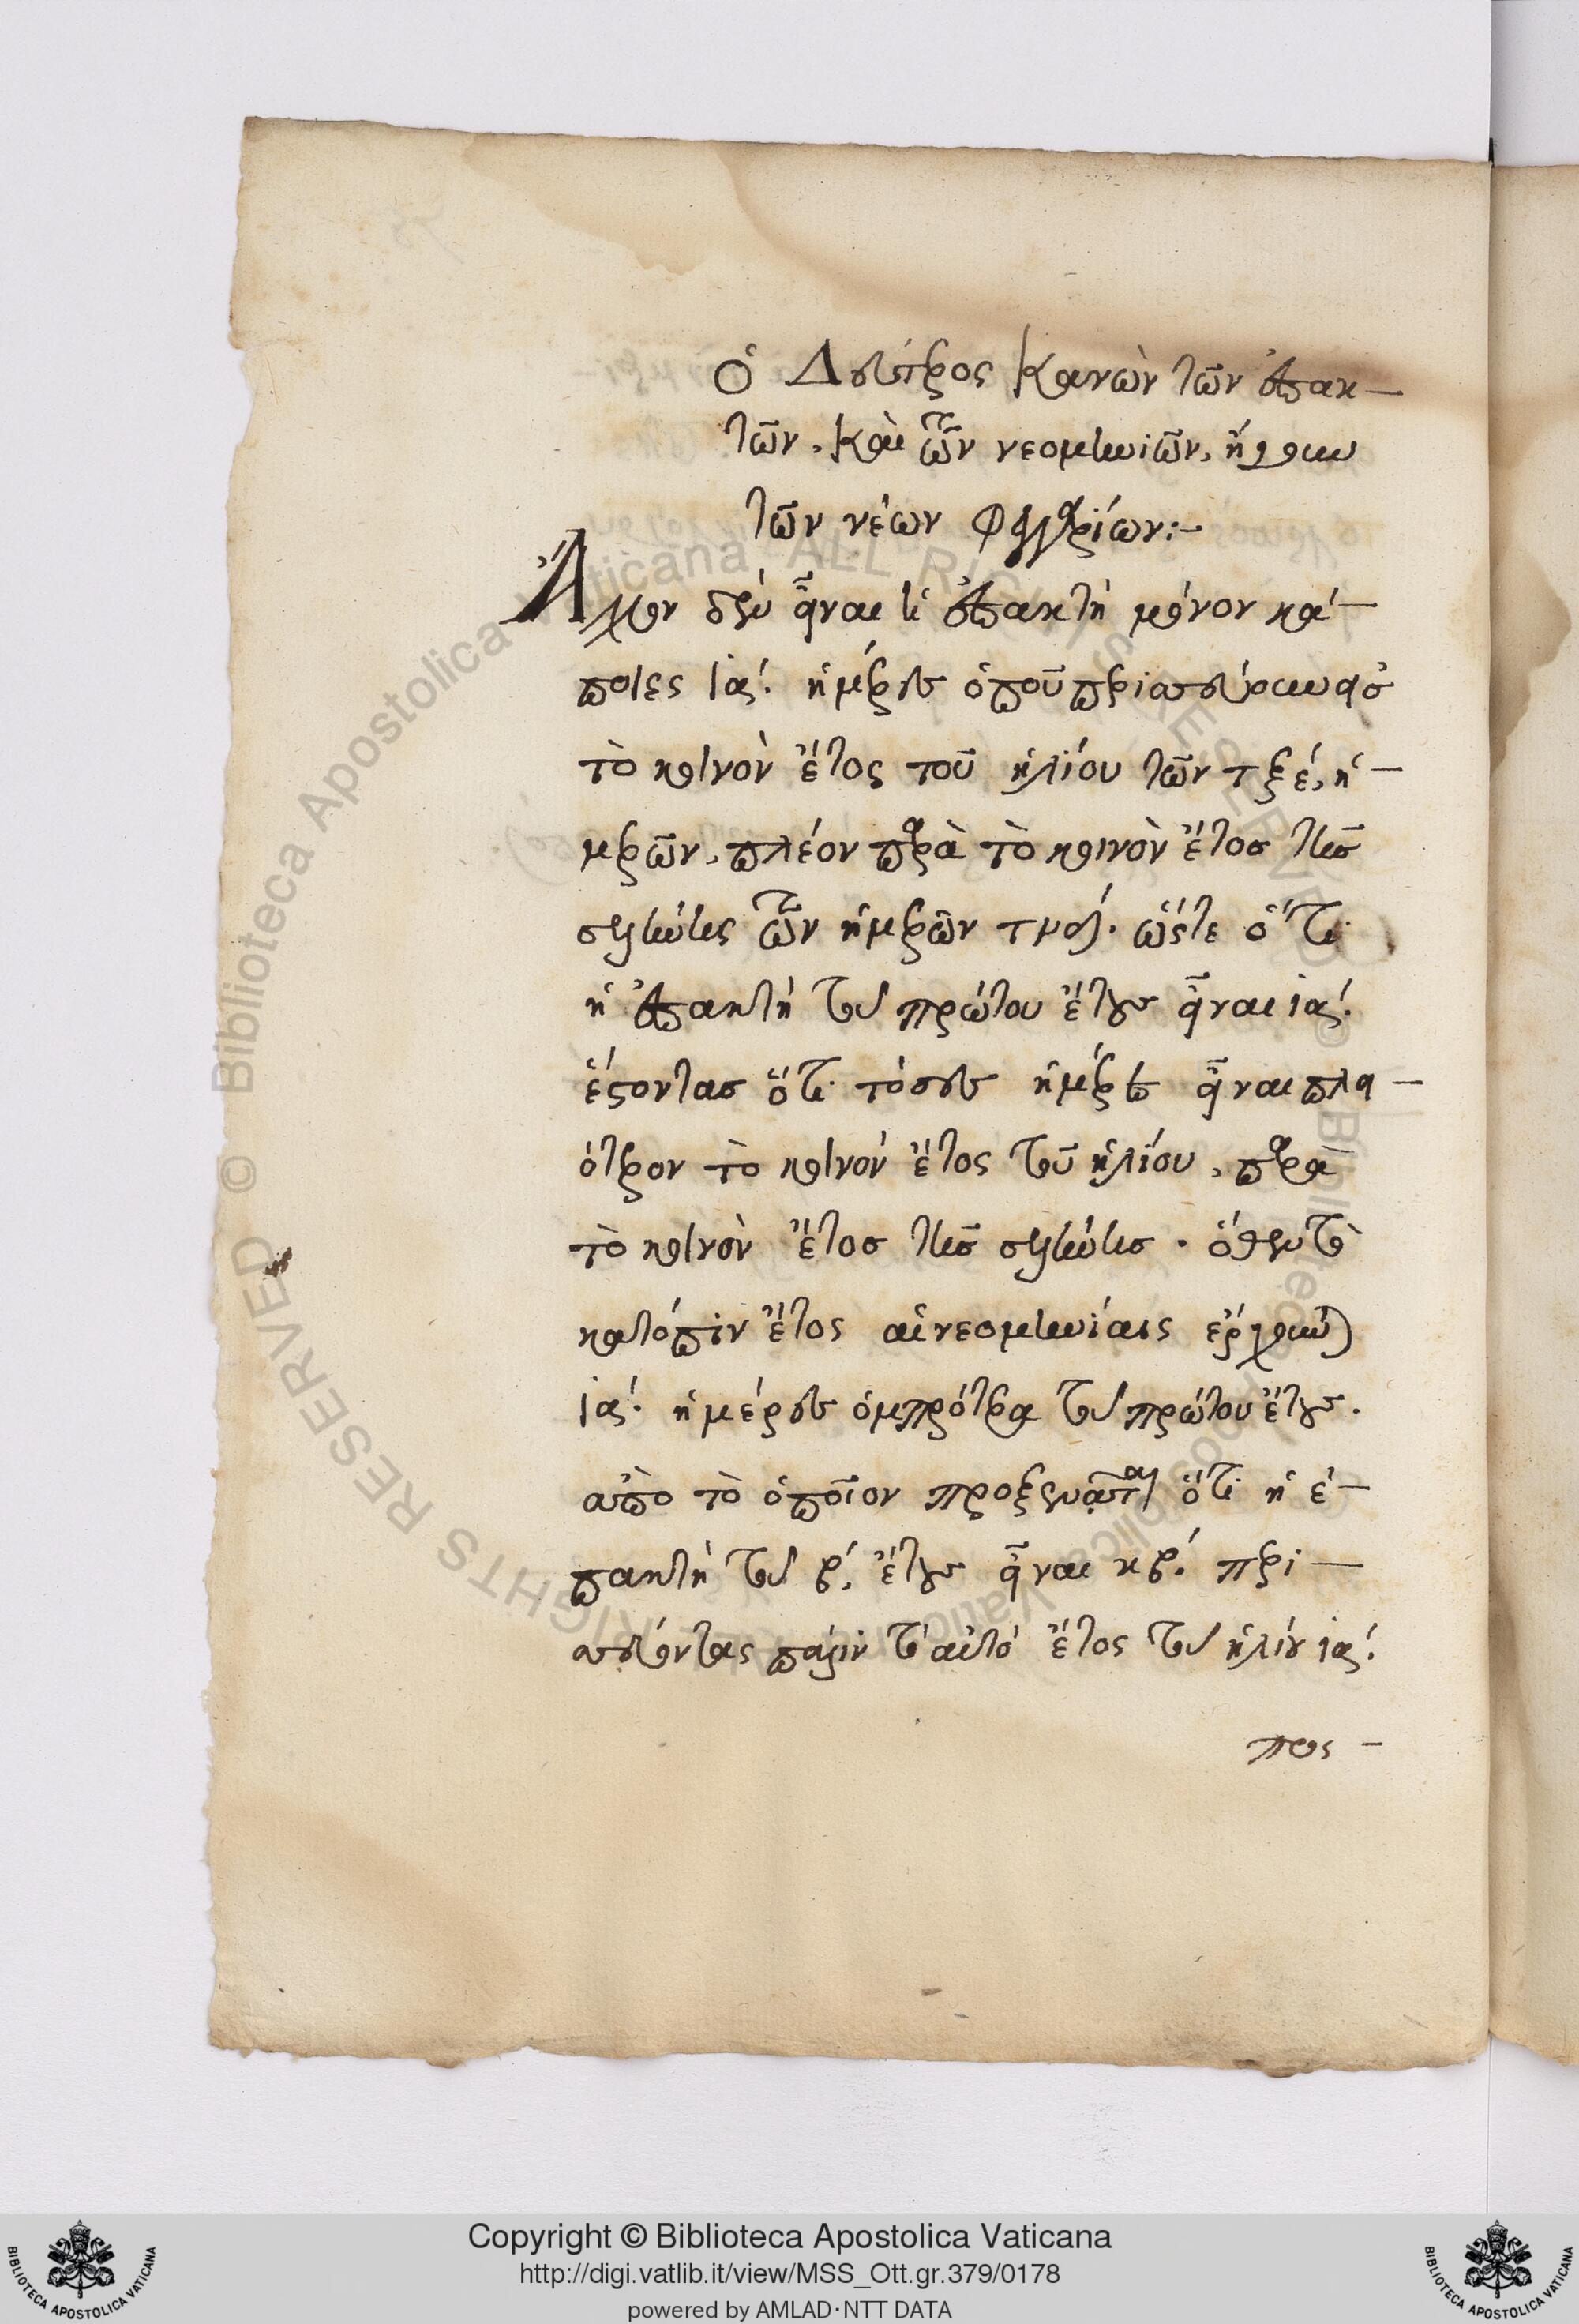 Ὁ Δεύτερος Κανὼν τῶν ἐπακ-
τῶν, καὶ τῶν νεομηνιῶν, ἤγουν
τῶν νέων Φεγγαρίων:-
Ἄλλον δὲν εἶναι ἡ ἐπακτὴ μόνον κά-
ποιες ια΄. ἡμέρες ὁποῦ περισσεύουν εἰς
τὸ κοινὸν ἔτος τοῦ ἡλίου τῶν τξε΄, ἡ-
μερῶν, πλέον παρὰ τὸ κοινὸν ἔτος τῆς
σελήνης τῶν ἡμερῶν τνδ΄. ὥστε ὅτι
ἡ ἐπακτὴ τοῦ πρώτου ἔτους εἶναι ια΄.
ἔσοντας ὅτι τόσες ἡμέρες εἶναι πλε-
ότερον τὸ κοινὸν ἔτος τοῦ ἡλίου, παρὰ
τὸ κοινὸν ἔτος τῆς σελήνης. ὅθεν τὸ
κατόπιν ἔτος αἱ νεομηνίαις ἔρχουν)
ια΄. ἡμέρες ὀμπρότερα τοῦ πρώτου ἔτους.
ἀπὸ τὸ ὁποῖον προξενᾶται ὅτι ἡ ἐ-
πακτὴ τοῦ β΄, ἔτους εἶναι κβ΄. περι-
σσεύοντας πάλιν τ' αὐτὸ ἔτος τοῦ ἡλίου ια΄.
Copyright © Biblioteca Apostolica Vaticana
http://digi.vatlib.it/view/MSS_Ott.gr.379/0178
powered by AMLAD·NTT DATA